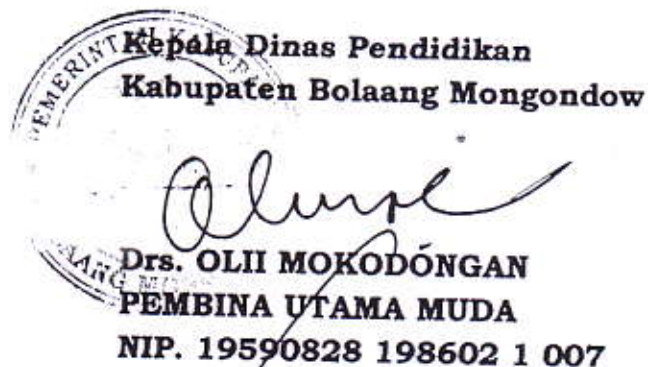 Kepala Dinas Pendidikan
Kabupaten Bolaang Mongondow
Drs. OLII MOKODONGAN
PEMBINA UTAMA MUDA
NIP. 19590828 198602 1 007